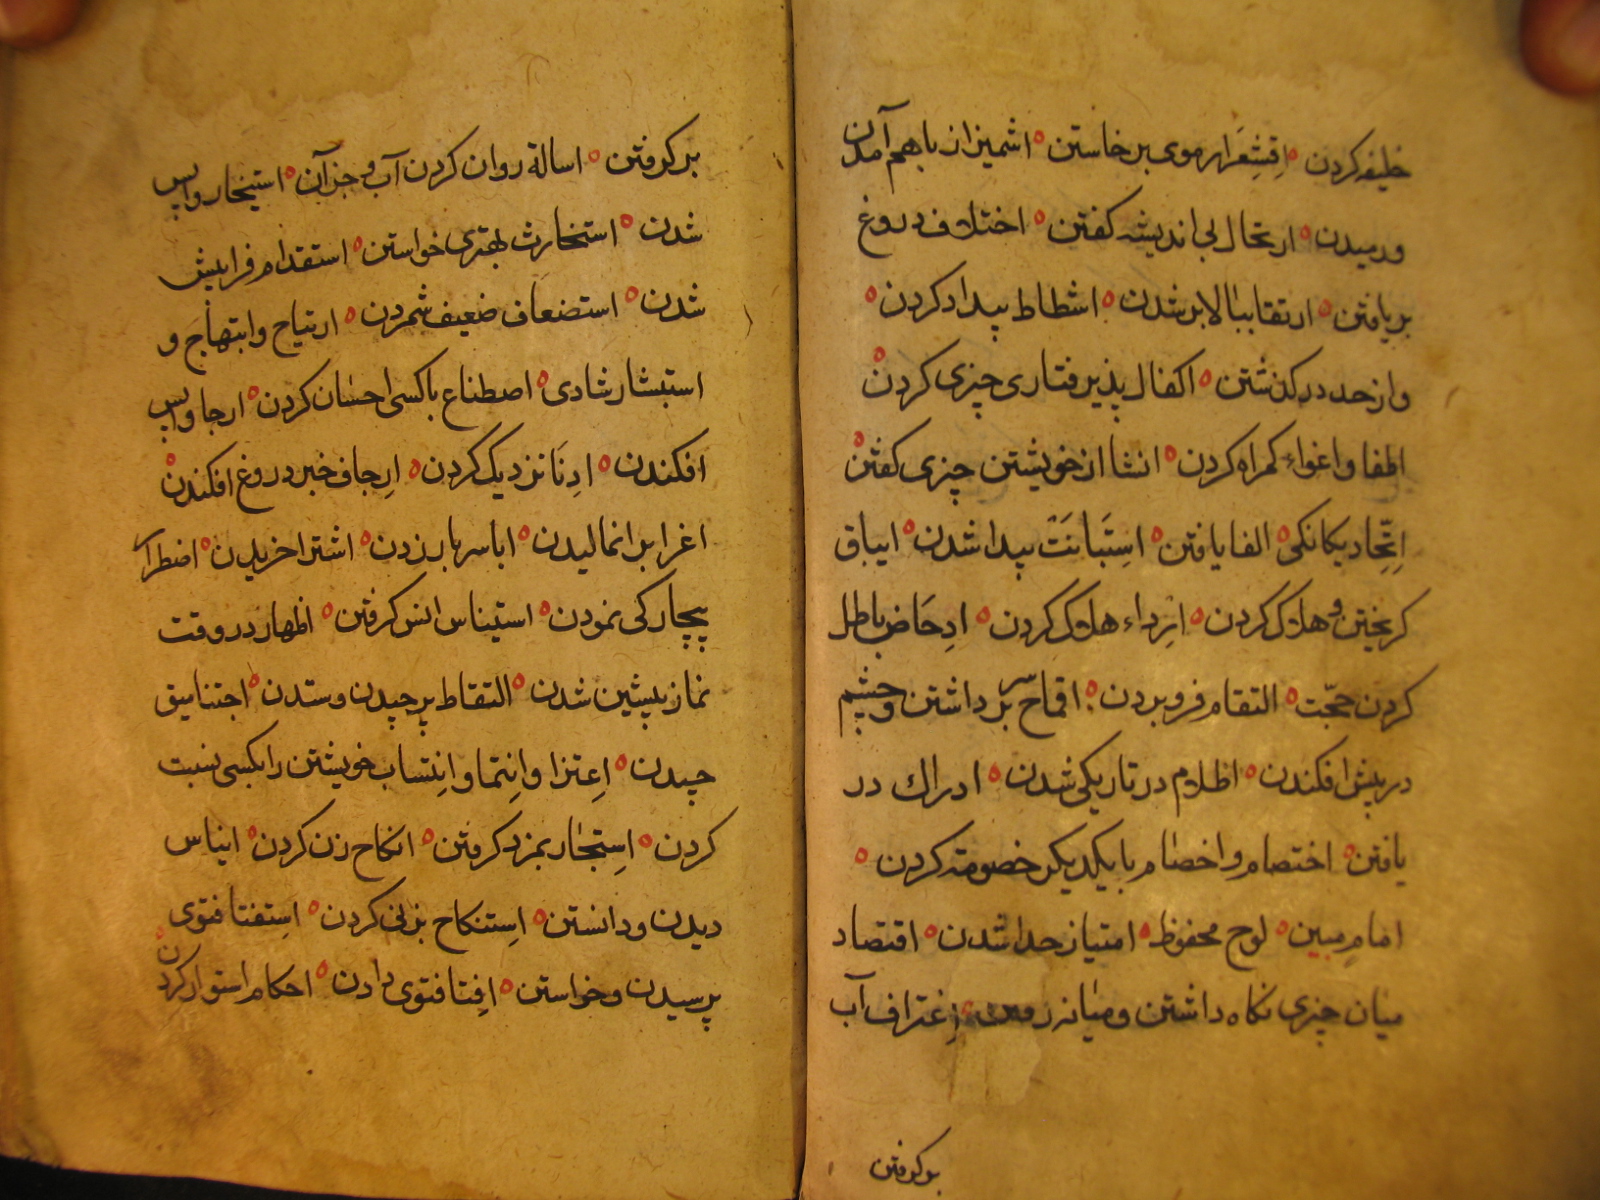 خلیفه کردن ه اِقشِعرَار موی بر خاستن ه اشمیزاز باهم آمدن
ورمیدن ه ارتجال بی اندیشه کفتن ه اختلاف دروغ
بر یافتن ه ارتقا ببالا بر شدن ه اشطاط بیداد کردن ه
واز حد درکذشتن ه اکفال پذیرفتاری چیزی کردن ه
اطغا واغواء کمراه کردن ه انشا از خویشتن چیزی کفتن ه
اِتّحِاد یکانکی ه الفا یافتن ه اِستَبانَتْ پیدا شدن ه ایباق
کریختن وهلاک کردن ه ارداء هلاک کردن ه ادِحَاض باطل
کردن حجّت ه التقام فرو بردن ه اقماح سر بر داشتن وچشم
در پیش افکندن ه اظلام در تاریکی شدن ه ادراك در
یافتن ه اختصام واخصام بایکدیکر خصومة کردن ه
امام مبین ه لوح محفوظ ه امتیاز جدا شدن ه اقتصاد
میان چیزی نکاه داشتن ومیانه ه اغتراف آب
بر کرفتن
بر کرفتن ه اسالة روان کردن آب وجز آن ه استیخار واپس
شدن ه استخارت بهتری خواستن ه استقدام فرا پیش
شدن ه استضعاف ضعیف شمردن ه ارتیاح وابتهاج و
استبشار شادی ه اصطناع باکسی احسان کردن ه ارجا واپس
افکندن ه ادِنَا نزدیک کردن ه ارِجاف خبر دروغ افکندن ه
اغرا بر انمالیدن ه ابا سر باب زدن ه اشترا خریدن ه اضطرار
بیچارکی نمودن ه استیناس انس کرفتن ه اظهار در وقت
نماز پیشین شدن ه التقاط بر چیدن وستدن ه اجتنا میق
چیدن ه اِعتزا واِنتِما واِنِتساب خویشتن را بکسی نسبت
کردن ه اِستیجار بمزد کرفتن ه انکاح زن کردن ه ایناس
دیدن ودانستن ه اِستنکاح بزنی کردن ه اِستفتا فتوی
پرسیدن وخواستن ه اِفتا فتوی دادن ه احکام استوار کردن ه